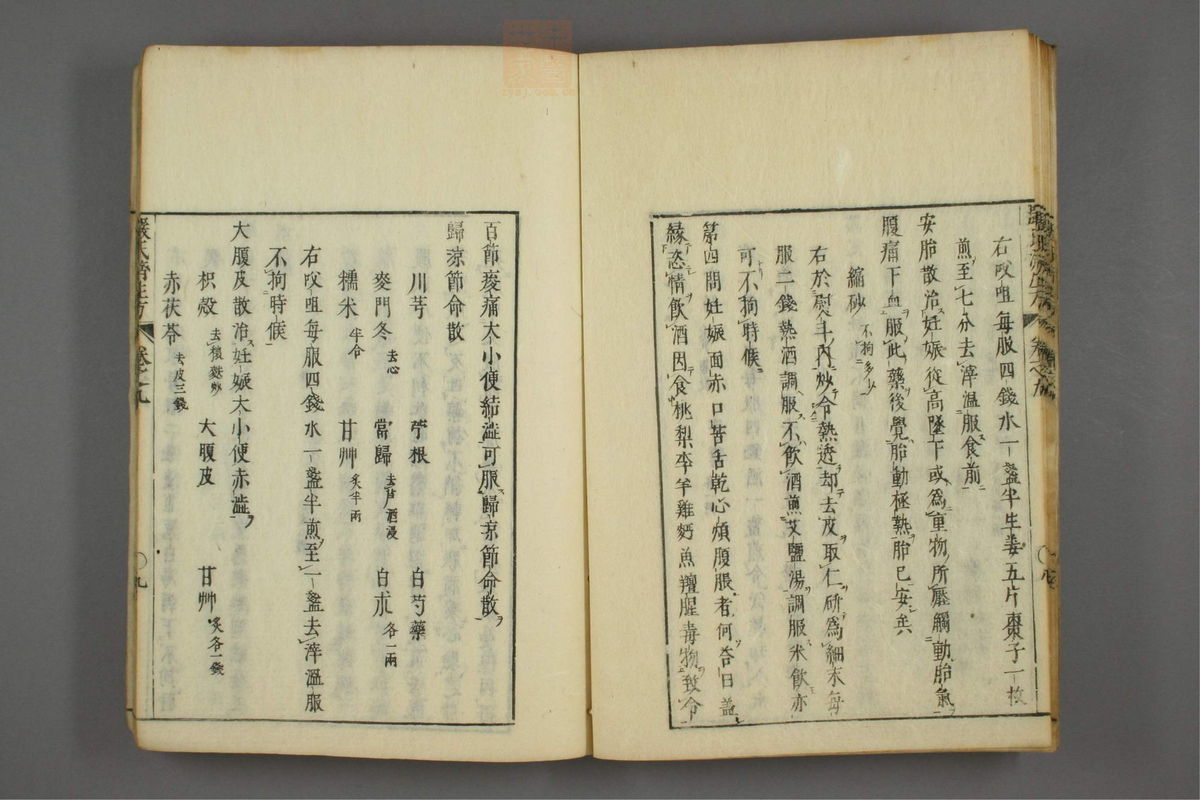 右㕮咀每服四錢水一盞半生姜五片棗子一枚
煎至七分去滓溫服食前
安胎散治妊娠從高墜下或爲重物所壓觸動胎氣
腹痛下血服此藥後覺胎動極熱胎已安矣
縮砂 不拘多少
右於熨斗內炒令熱透却去皮取仁研爲細末每
服二錢熱酒調服不飲酒煎艾鹽湯調服米飲亦
可不拘時候
第四問妊娠面赤口苦舌乾心煩腹脹者何荅曰蓋
縁恣情飲酒因食桃梨李羊雞麪魚羶腥毒物致令
百節痠痛大小便結澁可服歸凉節命散
歸凉節命散
川芎 苧根 白芍藥
麥門冬 去心 當歸 去芦酒浸 白朮 各一兩
糯米 半合 甘艸 炙半兩
右㕮咀每服四錢水一盞半煎至一盞去滓溫服
不拘時候
大腹皮散治妊娠大小便赤澁
枳殼 去穰麩炒 大腹皮 甘艸 炙各一錢
赤茯苓 去皮三錢
嚴氏濟生方 卷之九 九